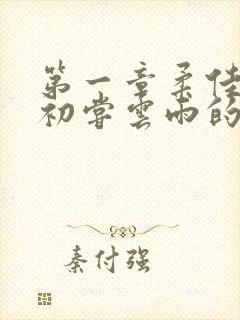 第一章柔佳
初尝雲雨的
秦付强